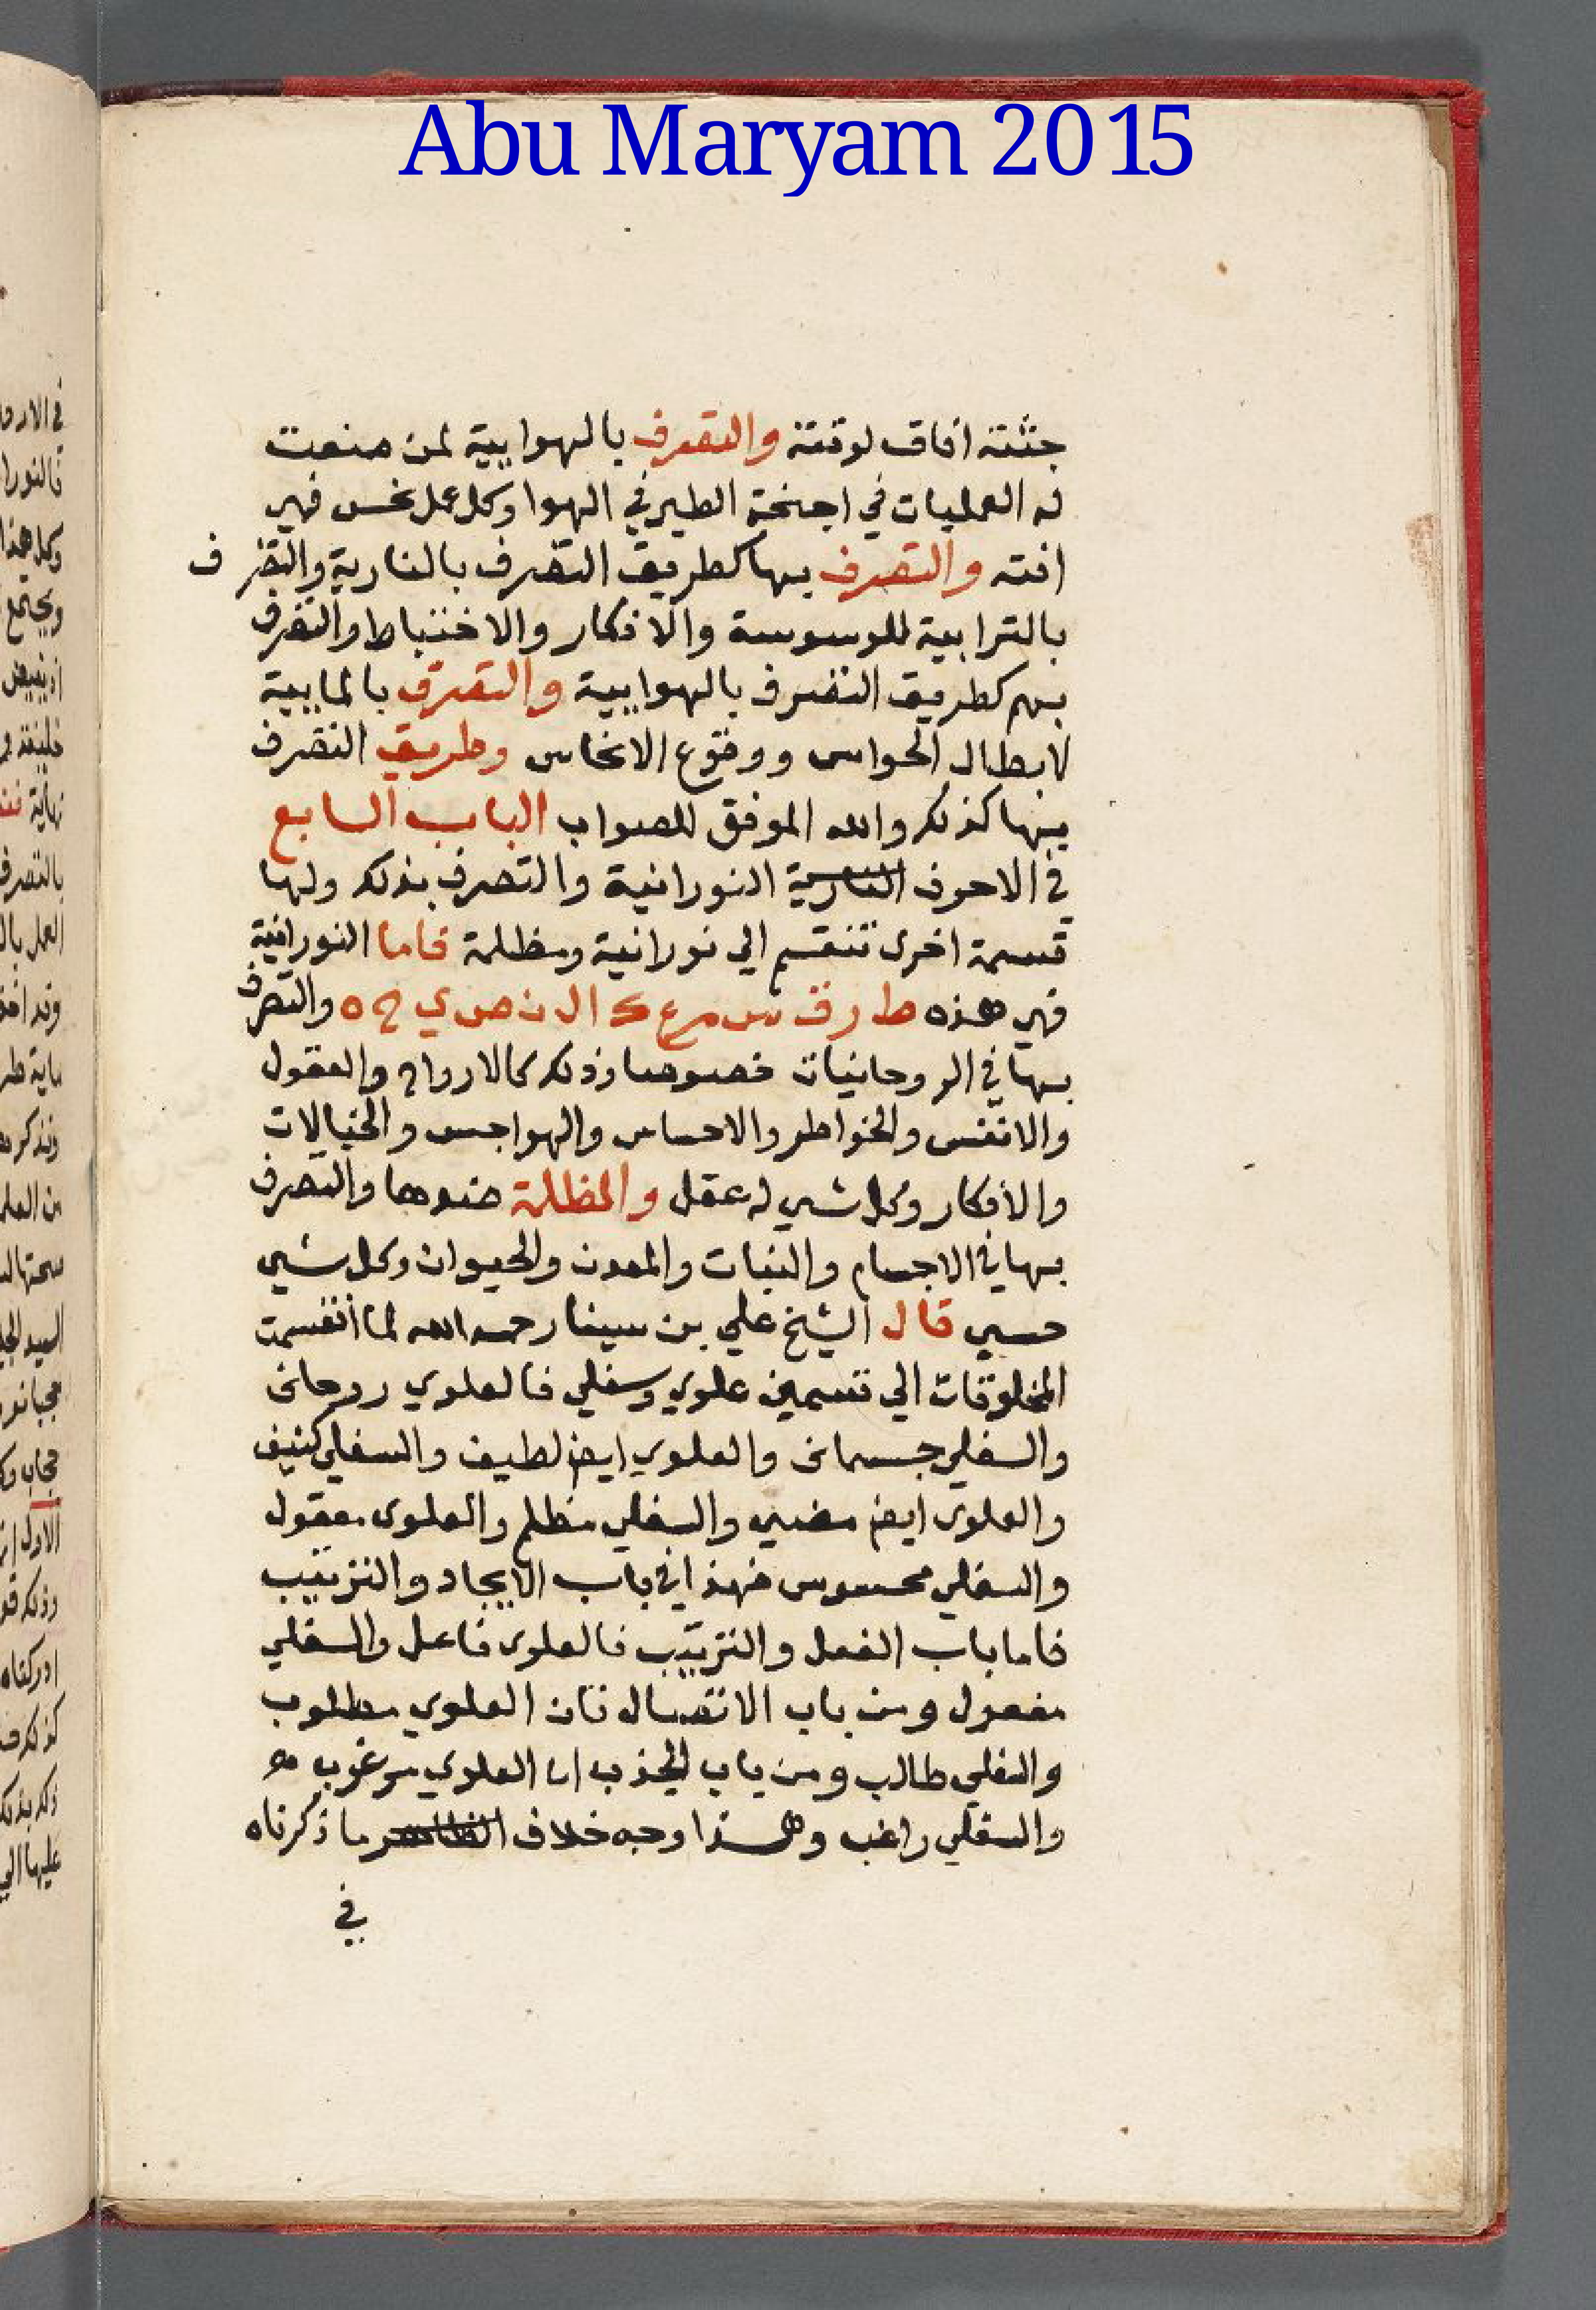 Abu Maryam 2015
جثته افاق لوقته والتصرف بالهوايية لمن صنعت
له العمليات في اجنحة الطير في الهوا وكل عمل نحس فهي
افته والتصرف بها كطريق التصرف بالنارية والتصرف
بالترابية للوسوسة والافكار والاختباط والتصرف
بهم كطريق التصرف بالهوايية والتصرف بالمايية
لابطال الحواس ووقوع الانحاس وطريق التصرف
بها كذلك والله الموفق للصواب الباب السابع
في الاحرف النارية النورانية والتصرف بذلك ولها
قسمة اخرى تنقسم الي نورانية ومظلمة فاما النورانية
فهي هذه ط ر ق س م ع ك ا ل ن ص ي ح ه والتصرف
بها في الروحانيات خصوصا وذلك كالارواح والعقول
والانفس والخواطر والاحساس والهواجس والخيالات
والافكار وكل شي له عقل والمظلمة ضدها والتصرف
بها في الاجسام والنبات والمعدن والحيوان وكل شي
حسي قال الشيخ علي بن سينا رحمه الله لما انقسمت
المخلوقات الي قسمين علوي وسفلي فالعلوي روحانى
والسفلي جسمانى والعلوي ايض لطيف والسفلي كثيف
والعلوى ايض مضيي والسفلي مظلم والعلوى معقول
والسفلي محسوس فهذا في باب الايجاد والترتيب
فاما باب الفعل والترتيب فالعلوى فاعل والسفلي
مفعول ومن باب الاتصال فان العلوي مطلوب
والسفلي طالب ومن باب الجذب ان العلوي مرغوب
والسفلي راغب وهذا وجه خلاف الظاهر ما ذكرناه
في